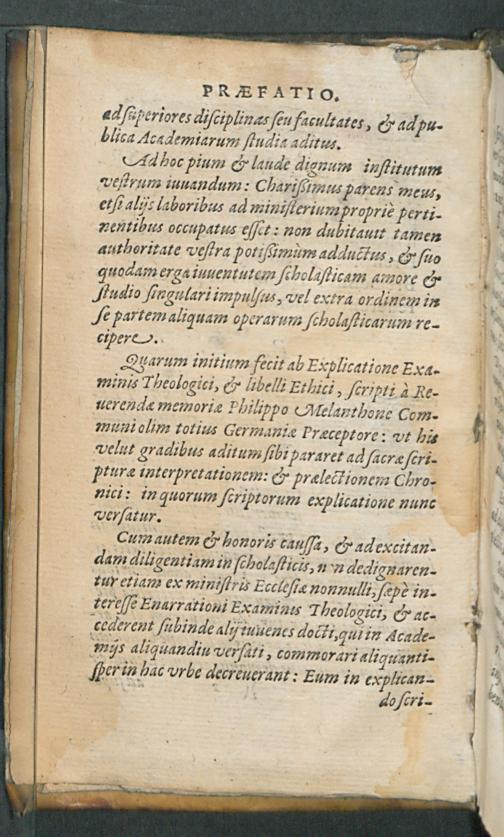 PRÆFATIO.
ad superiores disciplinas seu facultates, & ad pu-
blica Academiarum studia aditus.
Ad hoc pium & laude dignum institutum
vestrum iuuandum: Charißimus parens meus,
etsi alijs laboribus ad ministerium propriè perti-
nentibus occupatus esset: non dubitauit tamen
authoritate vestra potißimùm adductus, & suo
quodam erga iuuentutem scholasticam amore &
studio singulari impulsus, vel extra ordinem in
se partem aliquam operarum scholasticarum re-
cipere.
Quarum initium fecit ab Explicatione Exa-
minis Theologici, & libelli Ethici, scripti à Re-
uerendæ memoriæ Philippo Melanthone Com-
muni olim totius Germaniæ Præceptore: vt his
velut gradibus aditum sibi pararet ad sacræ scri-
pturæ interpretationem: & prælectionem Chro-
nici: in quorum scriptorum explicatione nunc
versatur.
Cum autem & honoris caussa, & ad excitan-
dam diligentiam in scholasticis, non dedignaren-
tur etiam ex ministris Ecclesiæ nonnulli, sæpè in-
teresse Enarrationi Examinis Theologici, & ac-
cederent subinde alij iuuenes docti, qui in Acade-
mijs aliquandiu versati, commorari aliquanti-
sper in hac vrbe decreuerant: Eum in explican-
do scri-